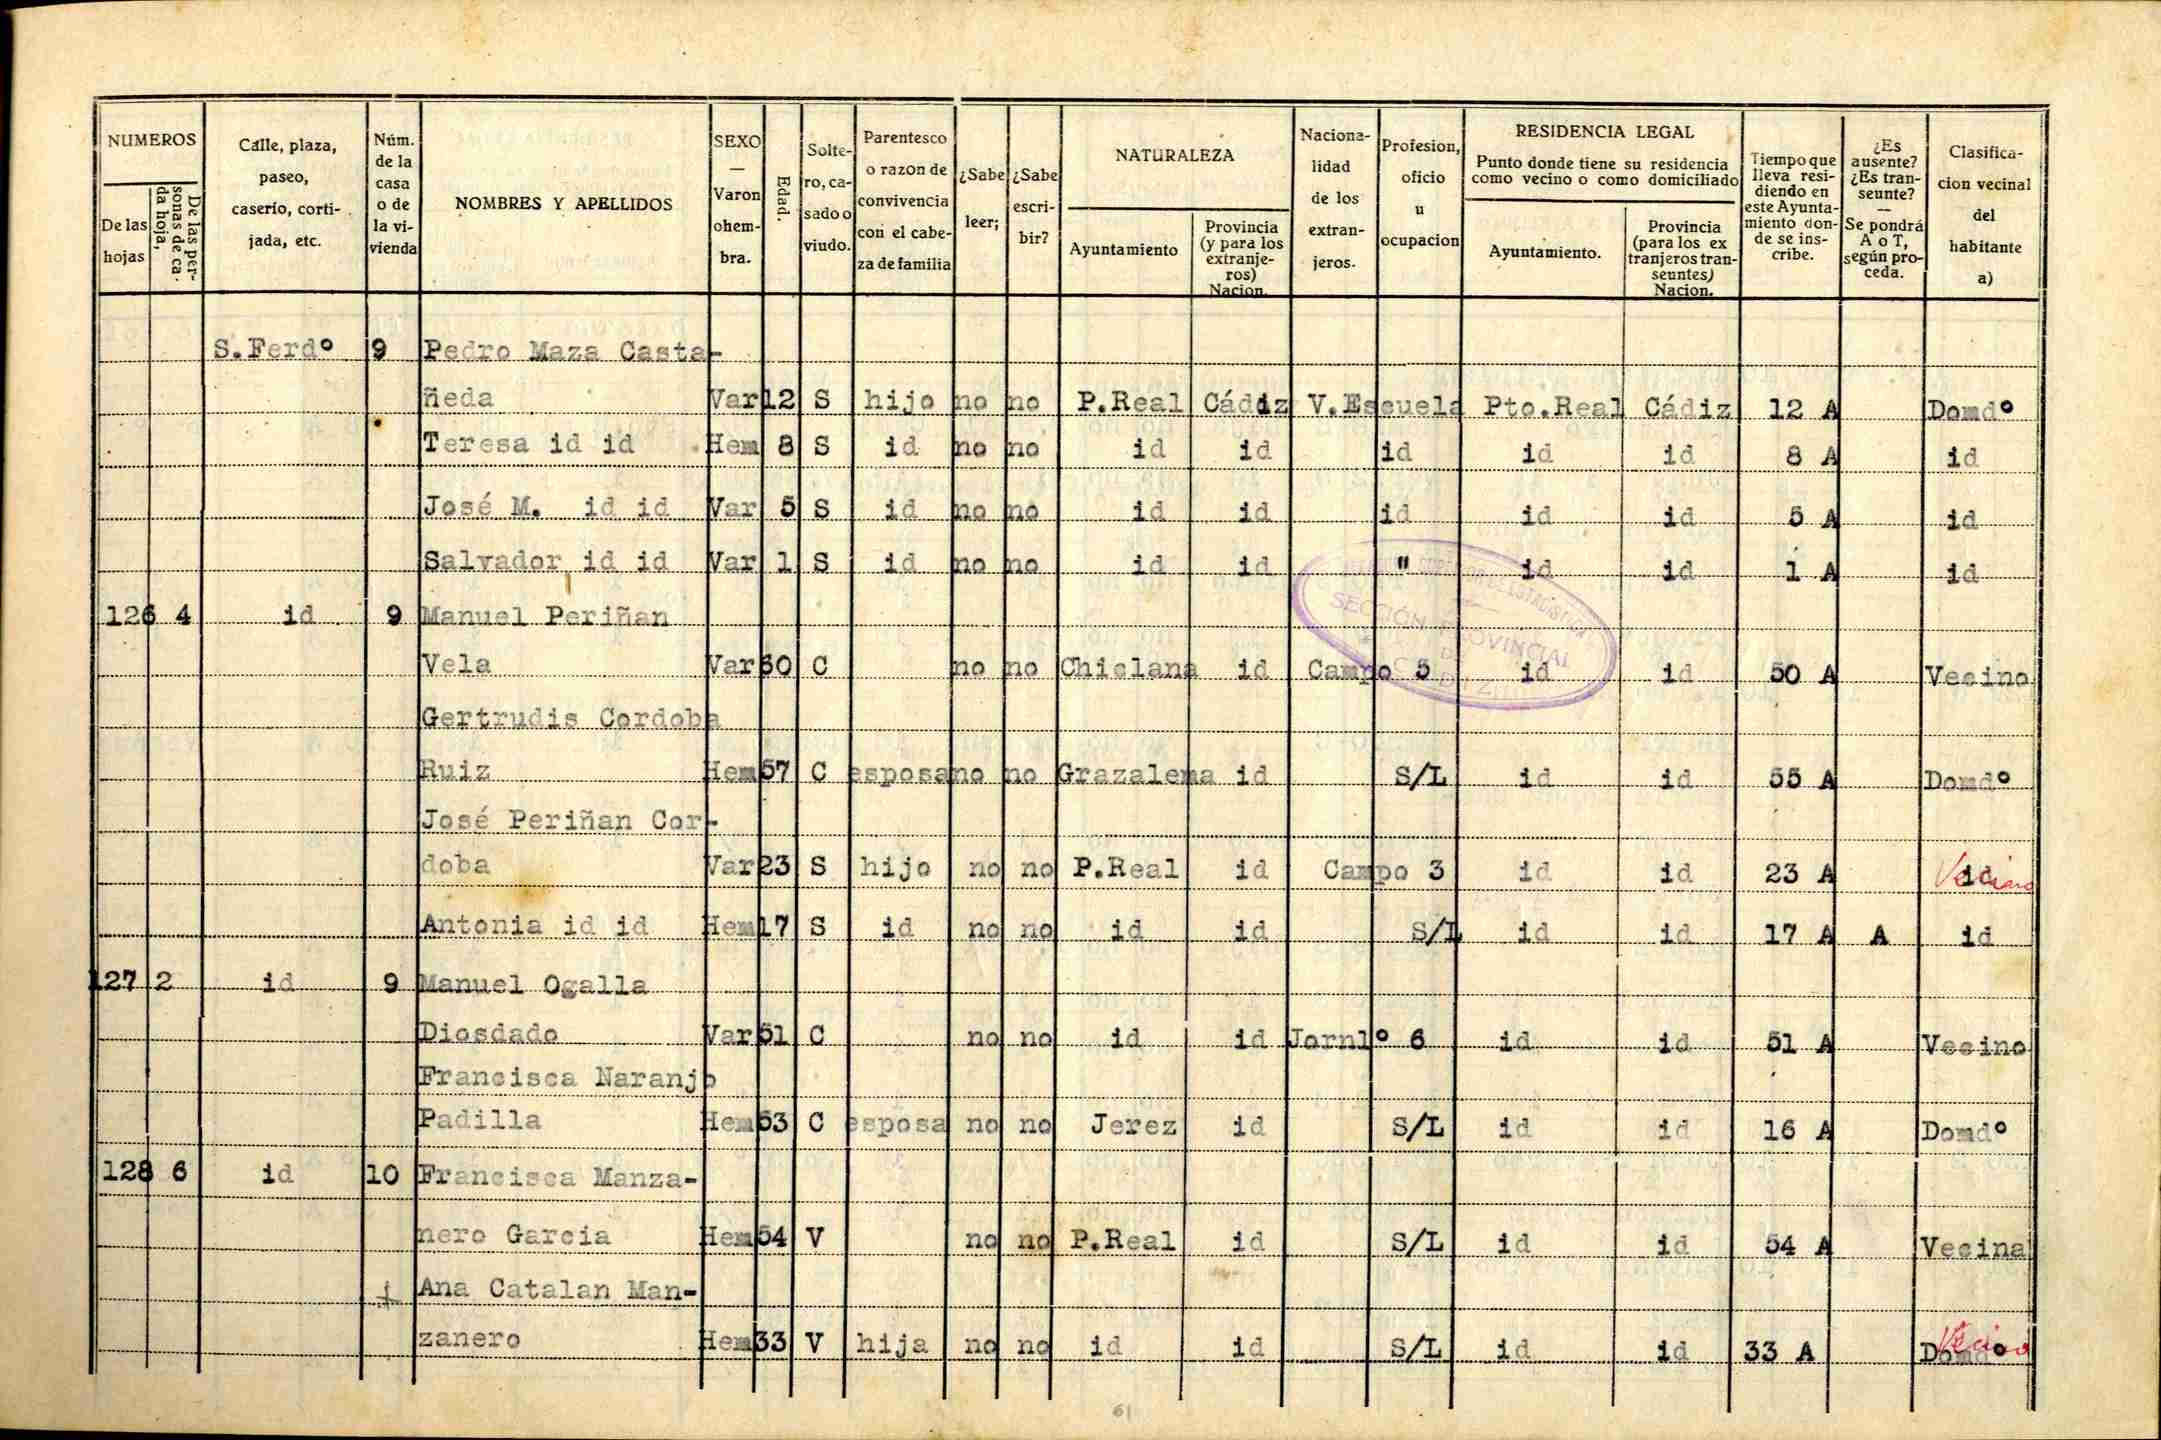 NUMEROS
De las hojas
De las personas de cada hoja,
Calle, plaza, paseo, caserio, cortijada, etc.
Núm. de la casa o de la vivienda
NOMBRES Y APELLIDOS
SEXO — Varon o hembra.
Edad.
Soltero, casado o viudo.
Parentesco o razon de convivencia con el cabeza de familia
¿Sabe leer;
¿Sabe escribir?
NATURALEZA
Ayuntamiento
Provincia (y para los extranjeros) Nacion.
Nacionalidad de los extranjeros.
Profesion, oficio u ocupacion
RESIDENCIA LEGAL
Punto donde tiene su residencia como vecino o como domiciliado
Ayuntamiento.
Provincia (para los extranjeros transeuntes) Nacion.
Tiempo que lleva residiendo en este Ayuntamiento donde se inscribe.
¿Es ausente? ¿Es transeunte? — Se pondrá A o T, según proceda.
Clasificacion vecinal del habitante a)
S.Ferdº 9 Pedro Maza Casta-
ñeda Var 12 S hijo no no P.Real Cádiz V.Escuela Pto.Real Cádiz 12 A Domdº
Teresa id id Hem 8 S id no no id id id id id 8 A id
José M. id id Var 5 S id no no id id id id id 5 A id
Salvador id id Var 1 S id no no id id " id id 1 A id
126 4 id 9 Manuel Periñan
Vela Var 60 C no no Chiclana id Campo 5 id id 50 A Vecino
Gertrudis Cordoba
Ruiz Hem 57 C esposa no no Grazalema id S/L id id 55 A Domdº
José Periñan Cor-
doba Var 23 S hijo no no P.Real id Campo 3 id id 23 A id Vecino
Antonia id id Hem 17 S id no no id id S/L id id 17 A A id
127 2 id 9 Manuel Ogalla
Diosdado Var 51 C no no id id Jornlº 6 id id 51 A Vecino
Francisca Naranjo
Padilla Hem 53 C esposa no no Jerez id S/L id id 16 A Domdº
128 6 id 10 Francisca Manza-
nero Garcia Hem 54 V no no P.Real id S/L id id 54 A Vecina
Ana Catalan Man-
zanero Hem 33 V hija no no id id S/L id id 33 A Domdº
SECCIÓN PROVINCIAL
DE
CADIZ
61